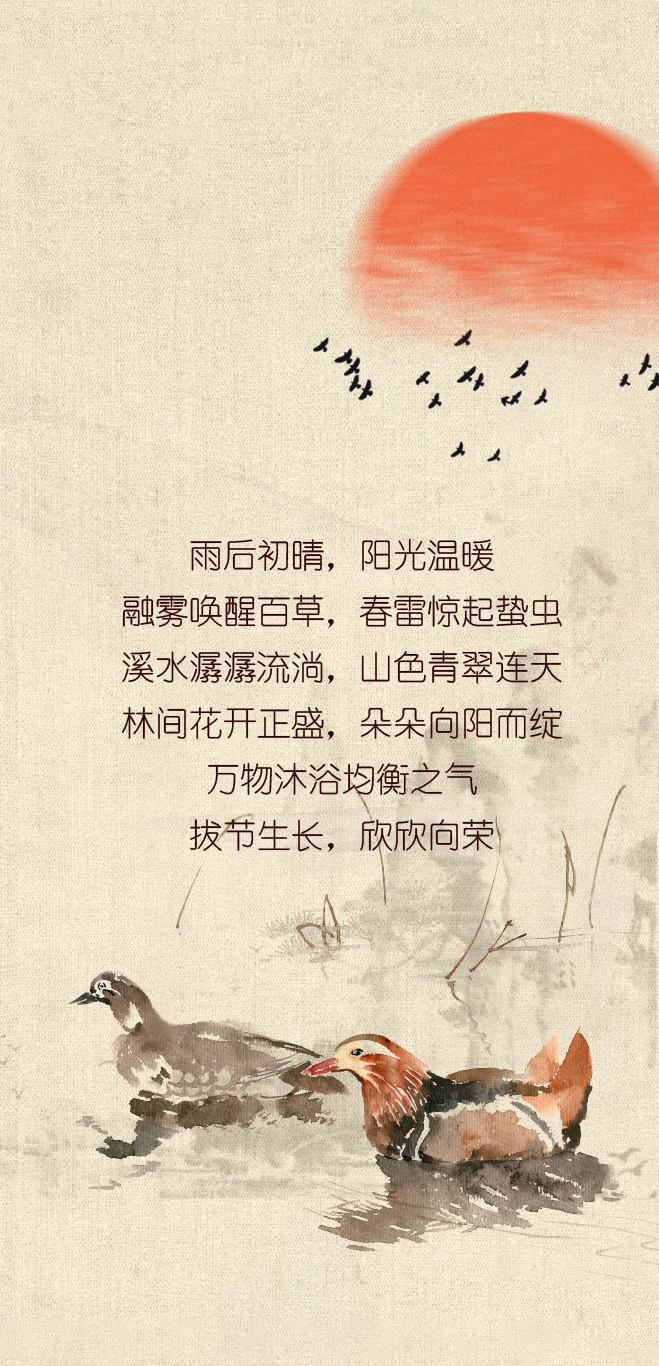 雨后初晴，阳光温暖
融雾唤醒百草，春雷惊起蛰虫
溪水潺潺流淌，山色青翠连天
林间花开正盛，朵朵向阳而绽
万物沐浴均衡之气
拔节生长，欣欣向荣